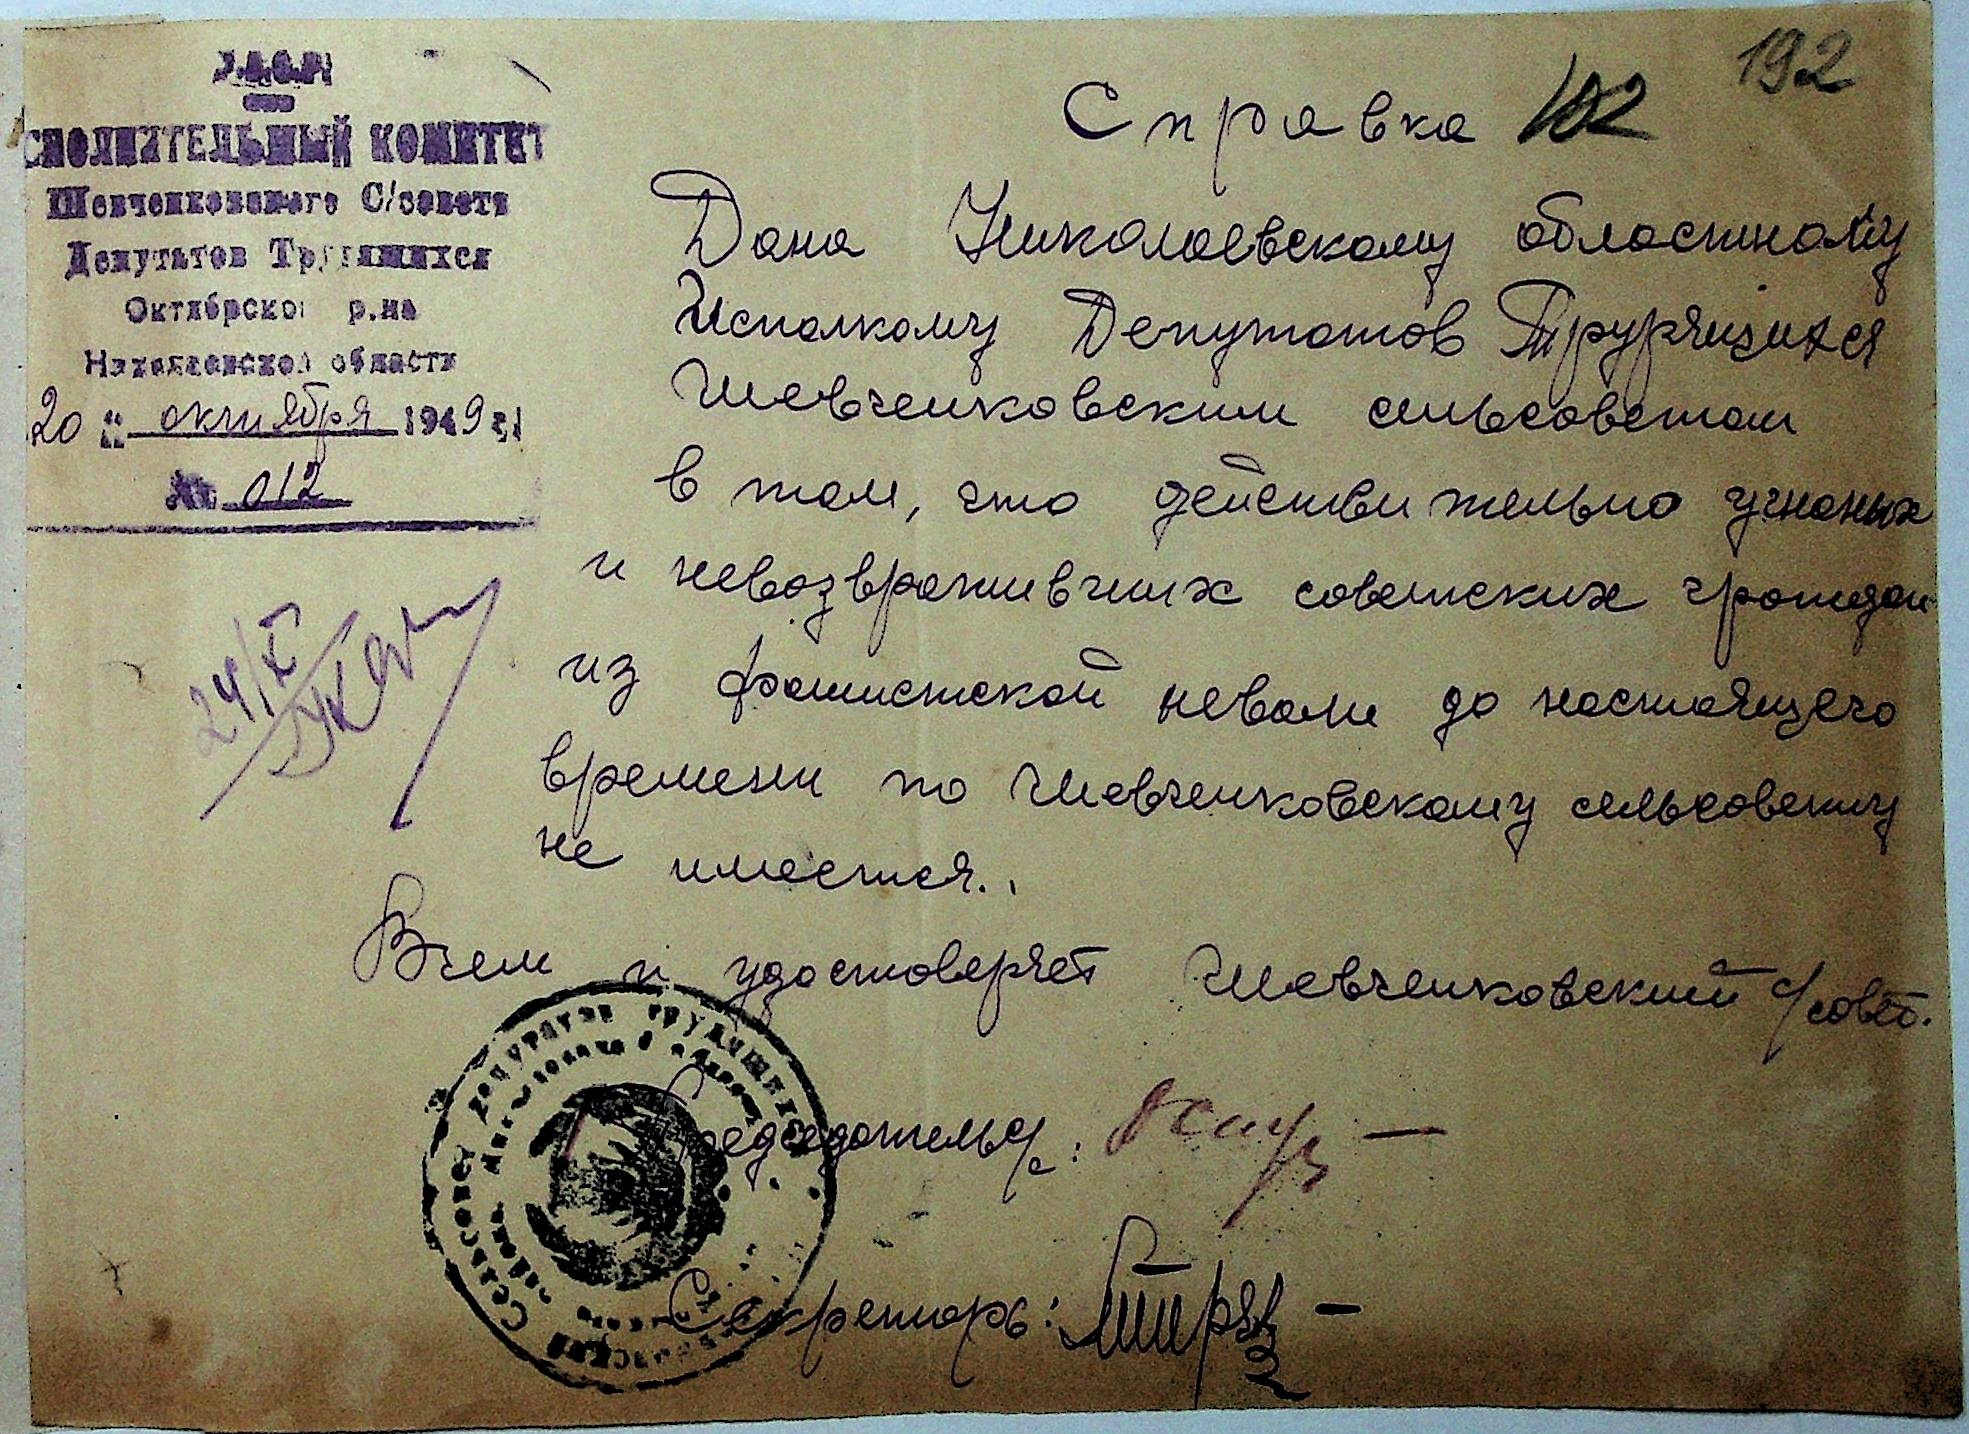 У.С.С.Р.
СПОЛНИТЕЛЬНЫЙ КОМИТЕТ
Шевченковского С/совета
Депутатов Трудящихся
Октябрьско р.на
Николаевской области
20 " октября 1949 г.
№ 012
192
Справка
Дана Николаевскому областному
Исполкому Депутатов Трурящихся
Шевченковским сельсоветом
в том, что действительно угнаных
и невозвратившихся советских граждан
из фашисткой неволи до настоящего
времени по Шевченковскому сельсовету
не имеется.
Вчем и удостоверяет Шевченковский с/совет.
24/X
Председатель с/с:
Секретарь:
депутатов трудящихся